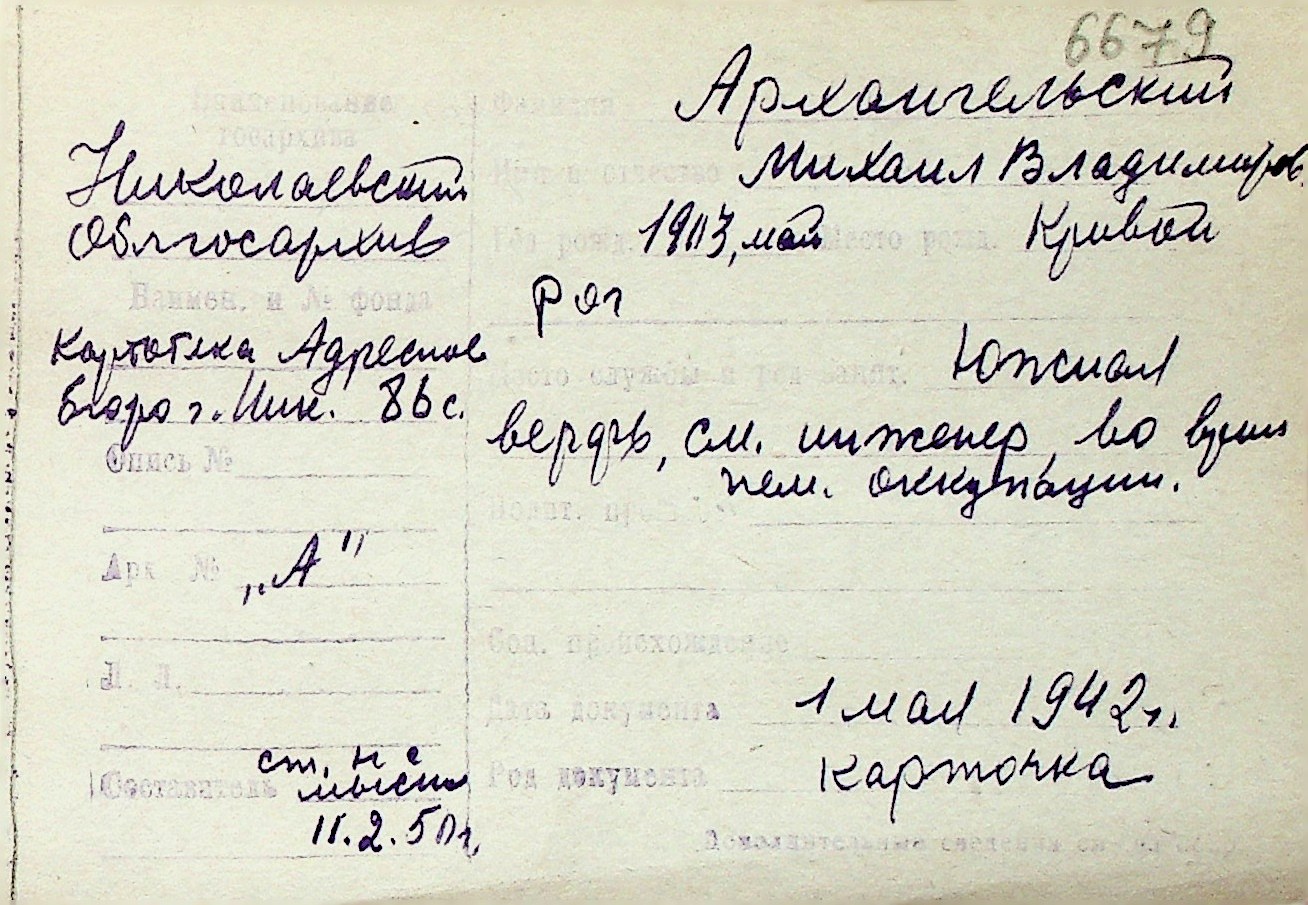 6679
Наименование госархива
Николаевский
Облгосархив
Наимен. и № фонда
Картотека Адресное
бюро г. Ник. 86 с.
Опись №
Арх №
„А"
Л. Л.
Составитель ст. н с
11.2.50г.
Фамилия Архангельский
Имя и отчество Михаил Владимиров.
Год рожд. 1903, май Место рожд. Кривой
Рог
Место службы и род занят. Южная
верфь, см. инженер, во время
нем. оккупации.
Соц. происхождение
Дата документа 1 мая 1942г.
Род документа карточка
Дополнительные сведения